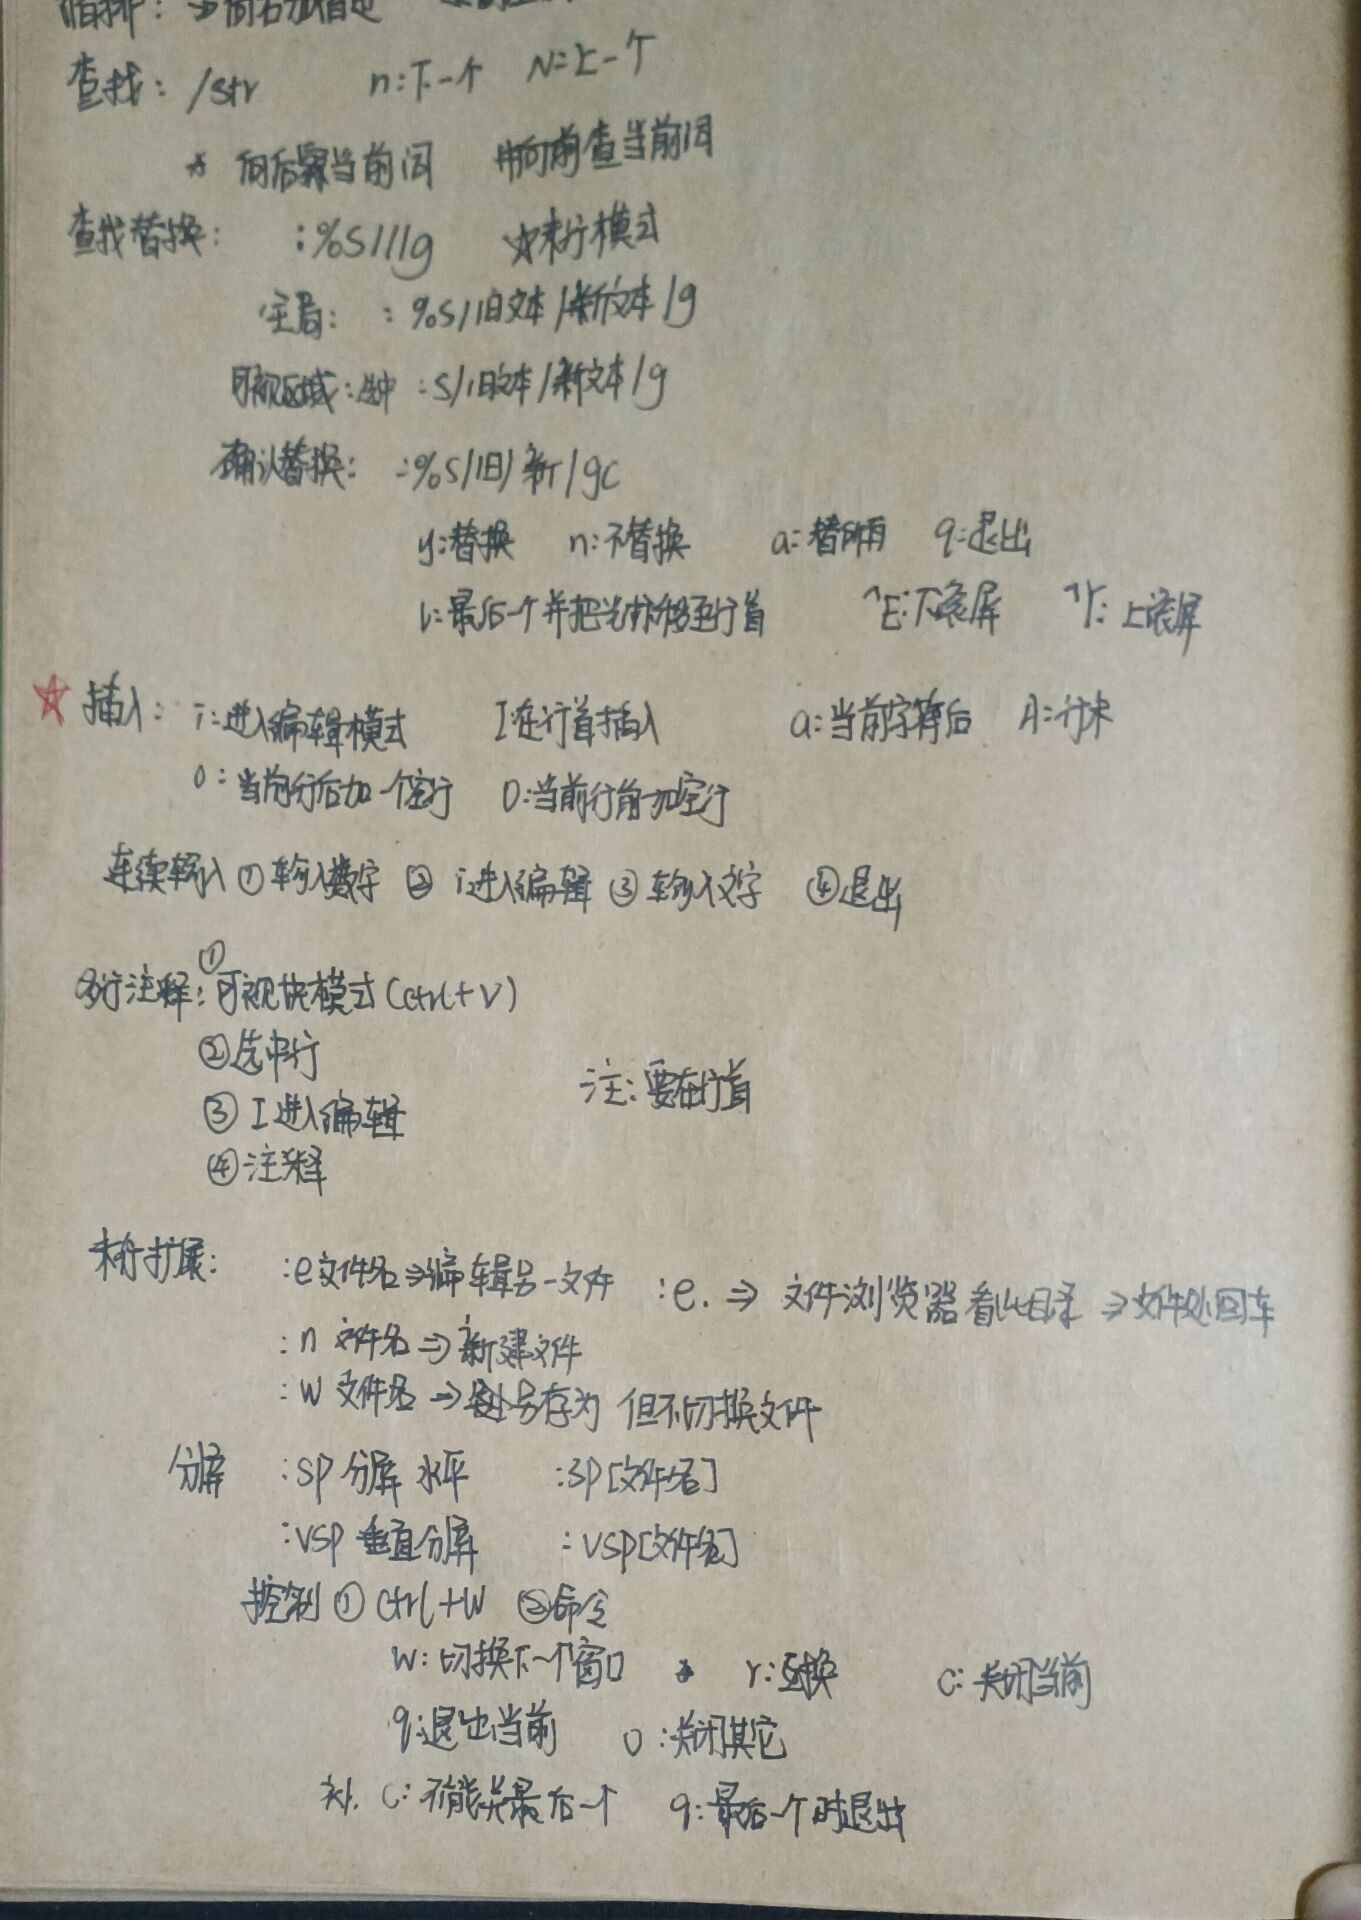 缩排：→向右加缩进
查找： /str n:下一个 N:上一个
* 向后查当前词 #向前查当前词
查找替换： :%s///g ☆末行模式
全局： :%s/旧文本/新文本/g
可视区域：选中 :s/旧文本/新文本/g
确认替换： :%s/旧/新/gc
y:替换 n:不替换 a:替所有 q:退出
l:最后一个并把光标移至行首 ^E:下滚屏 ^Y:上滚屏
☆ 插入： i:进入编辑模式 I:在行首插入 a:当前字符后 A:行末
o:当前行后加一个空行 O:当前行前一加空行
连续输入 ①输入数字 ② i进入编辑 ③输入文字 ④退出
多行注释：①可视块模式(ctrl+v)
②选中行
③ I进入编辑 注：要在行首
④注释
末行扩展： :e文件名⇒编辑另一文件 :e. ⇒ 文件浏览器 看此目录 ⇒文件处回车
:n 文件名⇒新建文件
:w 文件名⇒另存为 但不切换文件
分屏 :sp 分屏 水平 :sp[文件名]
:vsp 垂直分屏 :vsp[文件名]
控制 ① ctrl+w ②命令
w:切换下一个窗口 r:互换 c:关闭当前
q:退出当前 o:关闭其它
补. c:不能关最后一个 q:最后一个时退出